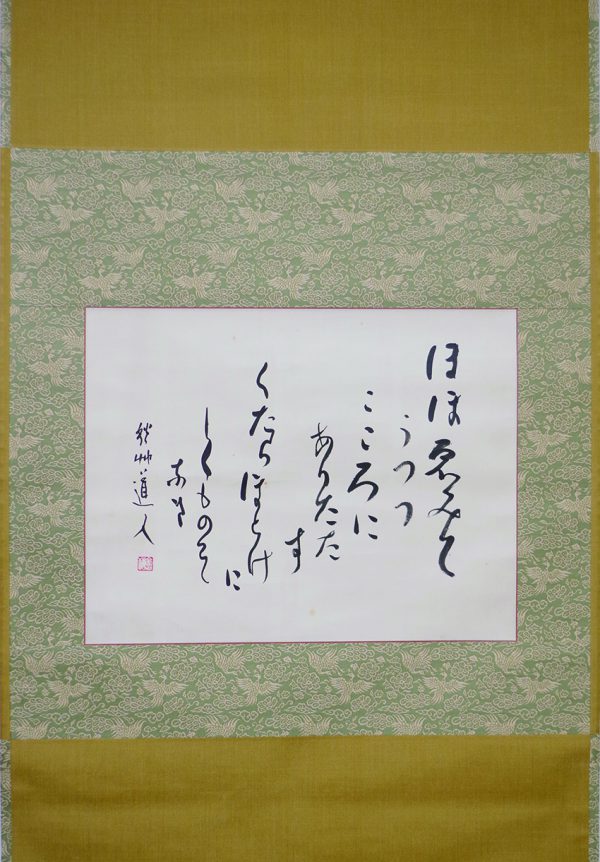 ほほゑみて
うつつ
こころに
ありたた
す
くたらほとけ
に
しくものそ
なき
秋艸道人